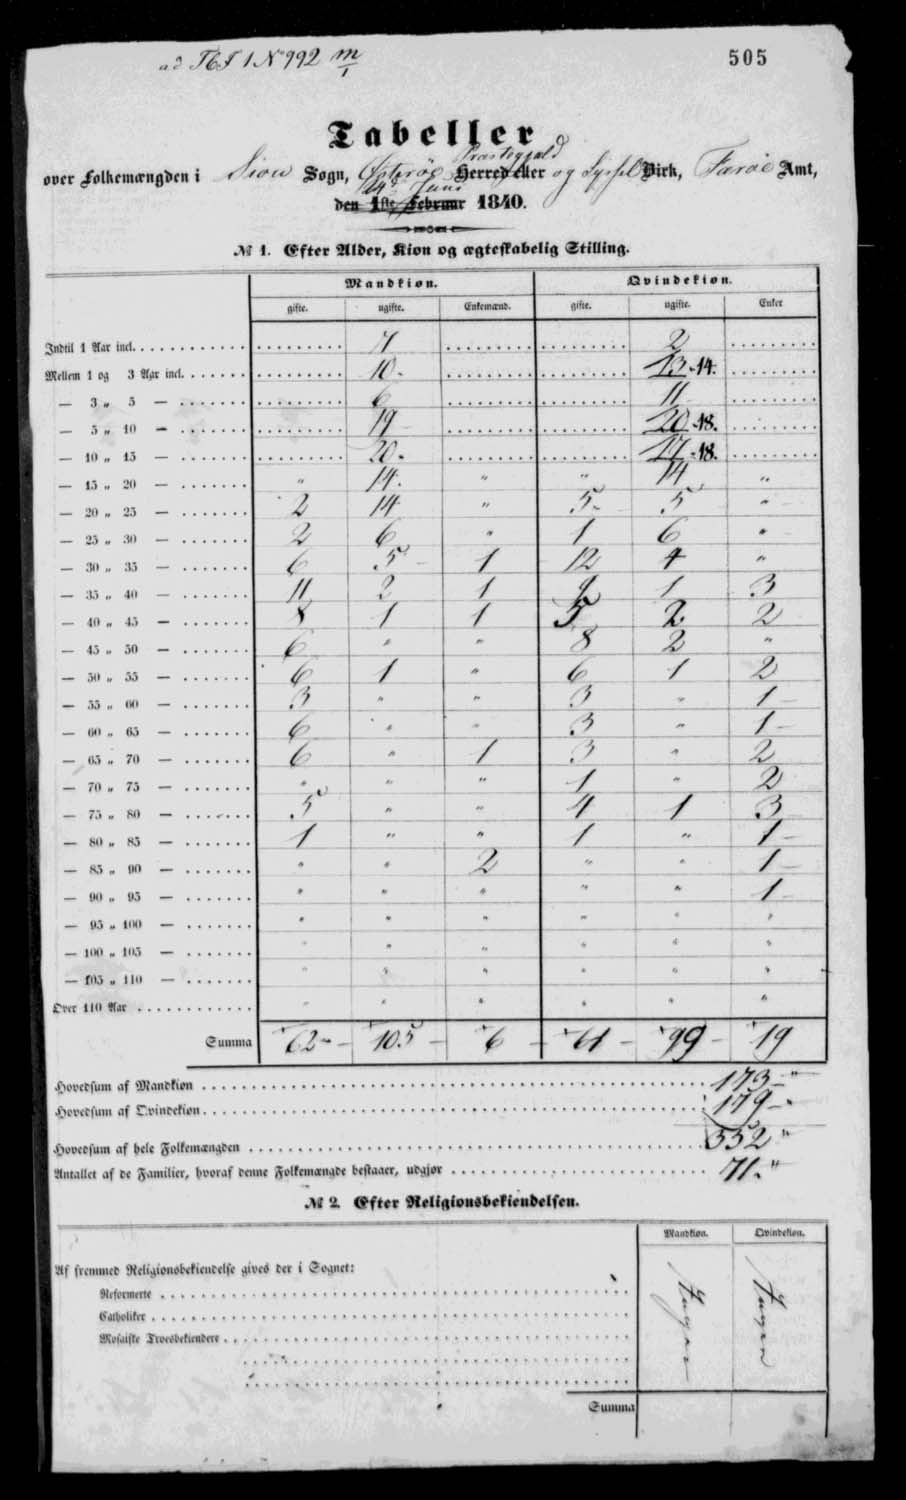 ad T&T 1 No 992 m/1
505
Tabeller
Præstegjeld
over Folkemængden i Siov Sogn, Østerøe Herred eller og Syssel Birk, Færöe Amt,
14 Juni
den 1ste Februar 1840.
№ 1. Efter Alder, Kion og ægteskabelig Stilling.
Mandkion. Qvindekion.
gifte. ugifte. Enkemænd. gifte. ugifte. Enker
Indtil 1 Aar incl. 7 2
Mellem 1 og 3 Aar incl. 10. 13 14.
— 3 „ 5 — 6 11
— 5 „ 10 — 19 20 18.
— 10 „ 15 — 20. 17 18.
— 15 „ 20 — „ 14. „ „ 14 „
— 20 „ 25 — 2 14 „ 5 5 „
— 25 „ 30 — 2 6 „ 1 6 „
— 30 „ 35 — 6 5 1 12 4 „
— 35 „ 40 — 11 2 1 9 1 3
— 40 „ 45 — 8 1 1 5 2 2
— 45 „ 50 — 6 „ „ 8 2 „
— 50 „ 55 — 6 1 „ 6 1 2
— 55 „ 60 — 3 „ „ 3 „ 1
— 60 „ 65 — 6 „ „ 3 „ 1
— 65 „ 70 — 6 „ 1 3 „ 2
— 70 „ 75 — „ „ „ 1 „ 2
— 75 „ 80 — 5 „ „ 4 1 3
— 80 „ 85 — 1 „ „ 1 „ 1
— 85 „ 90 — „ „ 2 „ „ 1
— 90 „ 95 — „ „ „ „ „ 1
— 95 „ 100 — „ „ „ „ „ „
— 100 „ 105 — „ „ „ „ „ „
— 105 „ 110 — „ „ „ „ „ „
Over 110 Aar „ „ „ „ „ „
Summa 62 105 6 61 99 19
Hovedsum af Mandkion 173
Hovedsum af Qvindekion 179
Hovedsum af hele Folkemængden 352
Antallet af de Familier, hvoraf denne Folkemængde bestaaer, udgjør 71.
№ 2. Efter Religionsbekiendelsen.
Mandkion. Qvindekion.
Af fremmed Religionsbekiendelse gives der i Sognet:
Reformerte
Catholiker
Mosaiske Troesbekiendere
Ingen Ingen
Summa